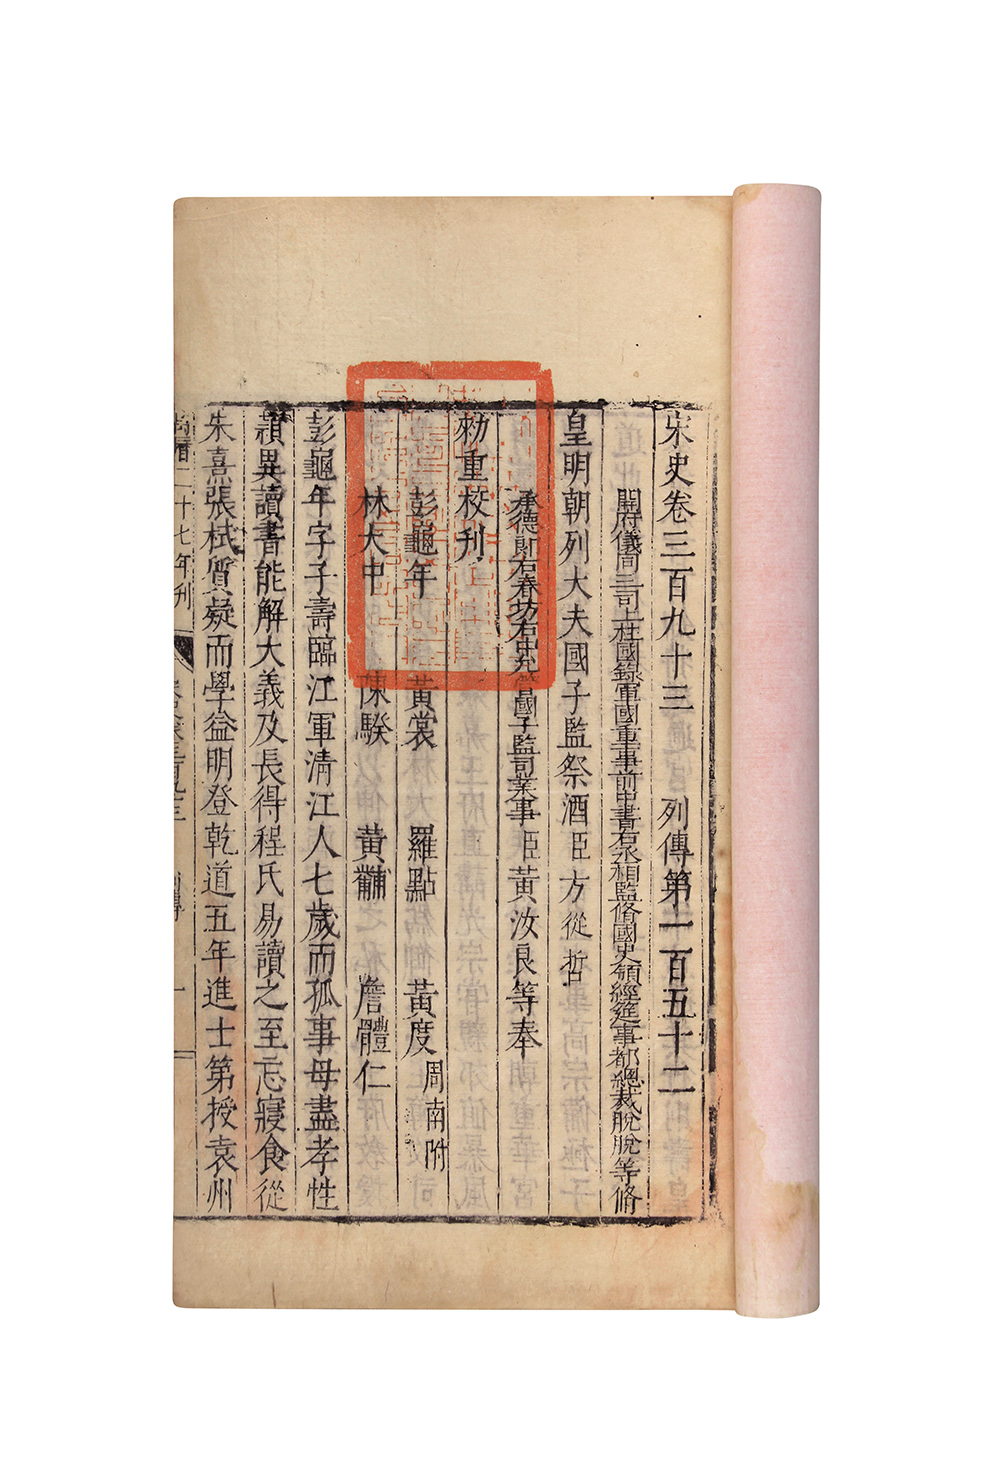 宋史卷三百九十三 列傳第一百五十二
開府儀同三司上柱國錄軍國重事前中書右丞相監脩國史領經筵事都總裁脫脫等脩
皇明朝列大夫國子監祭酒臣方從哲
承德郎右春坊右中允管國子監司業事臣黃汝良等奉
勑重校刊
彭龜年 黃裳 羅點 黃度 周南附
林大中 陳騤 黃黼 詹體仁
彭龜年字子壽臨江軍清江人七歲而孤事母盡孝性
頴異讀書能解大義及長得程氏易讀之至忘寢食從
朱熹張栻質疑而學益明登乾道五年進士第授袁州
萬曆二十七年刊